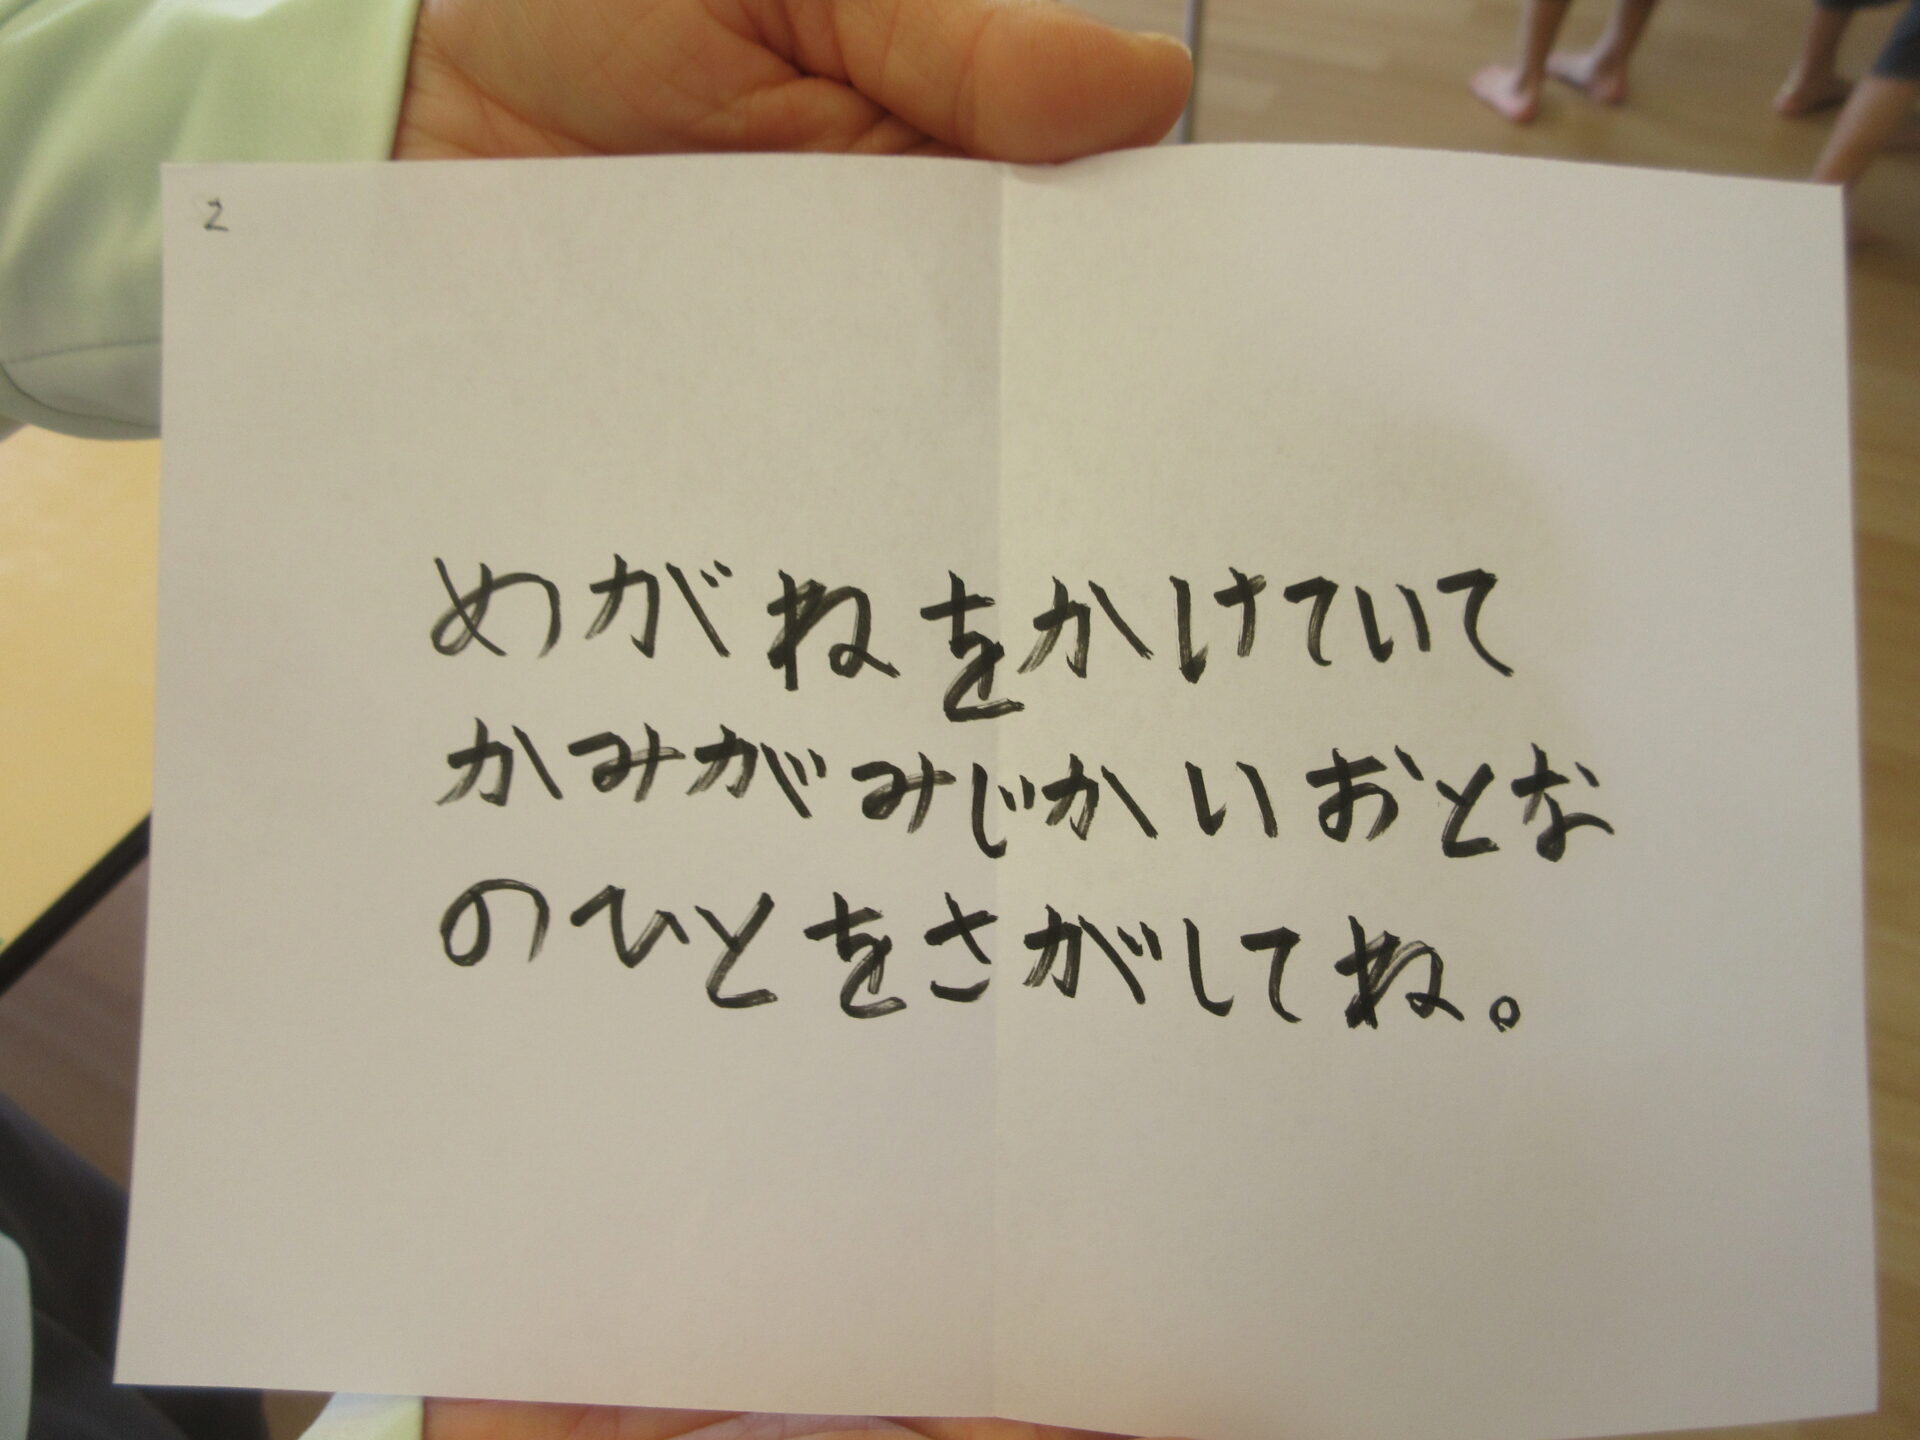 2
めがねをかけていて
かみがみじかいおとな
のひとをさがしてね。